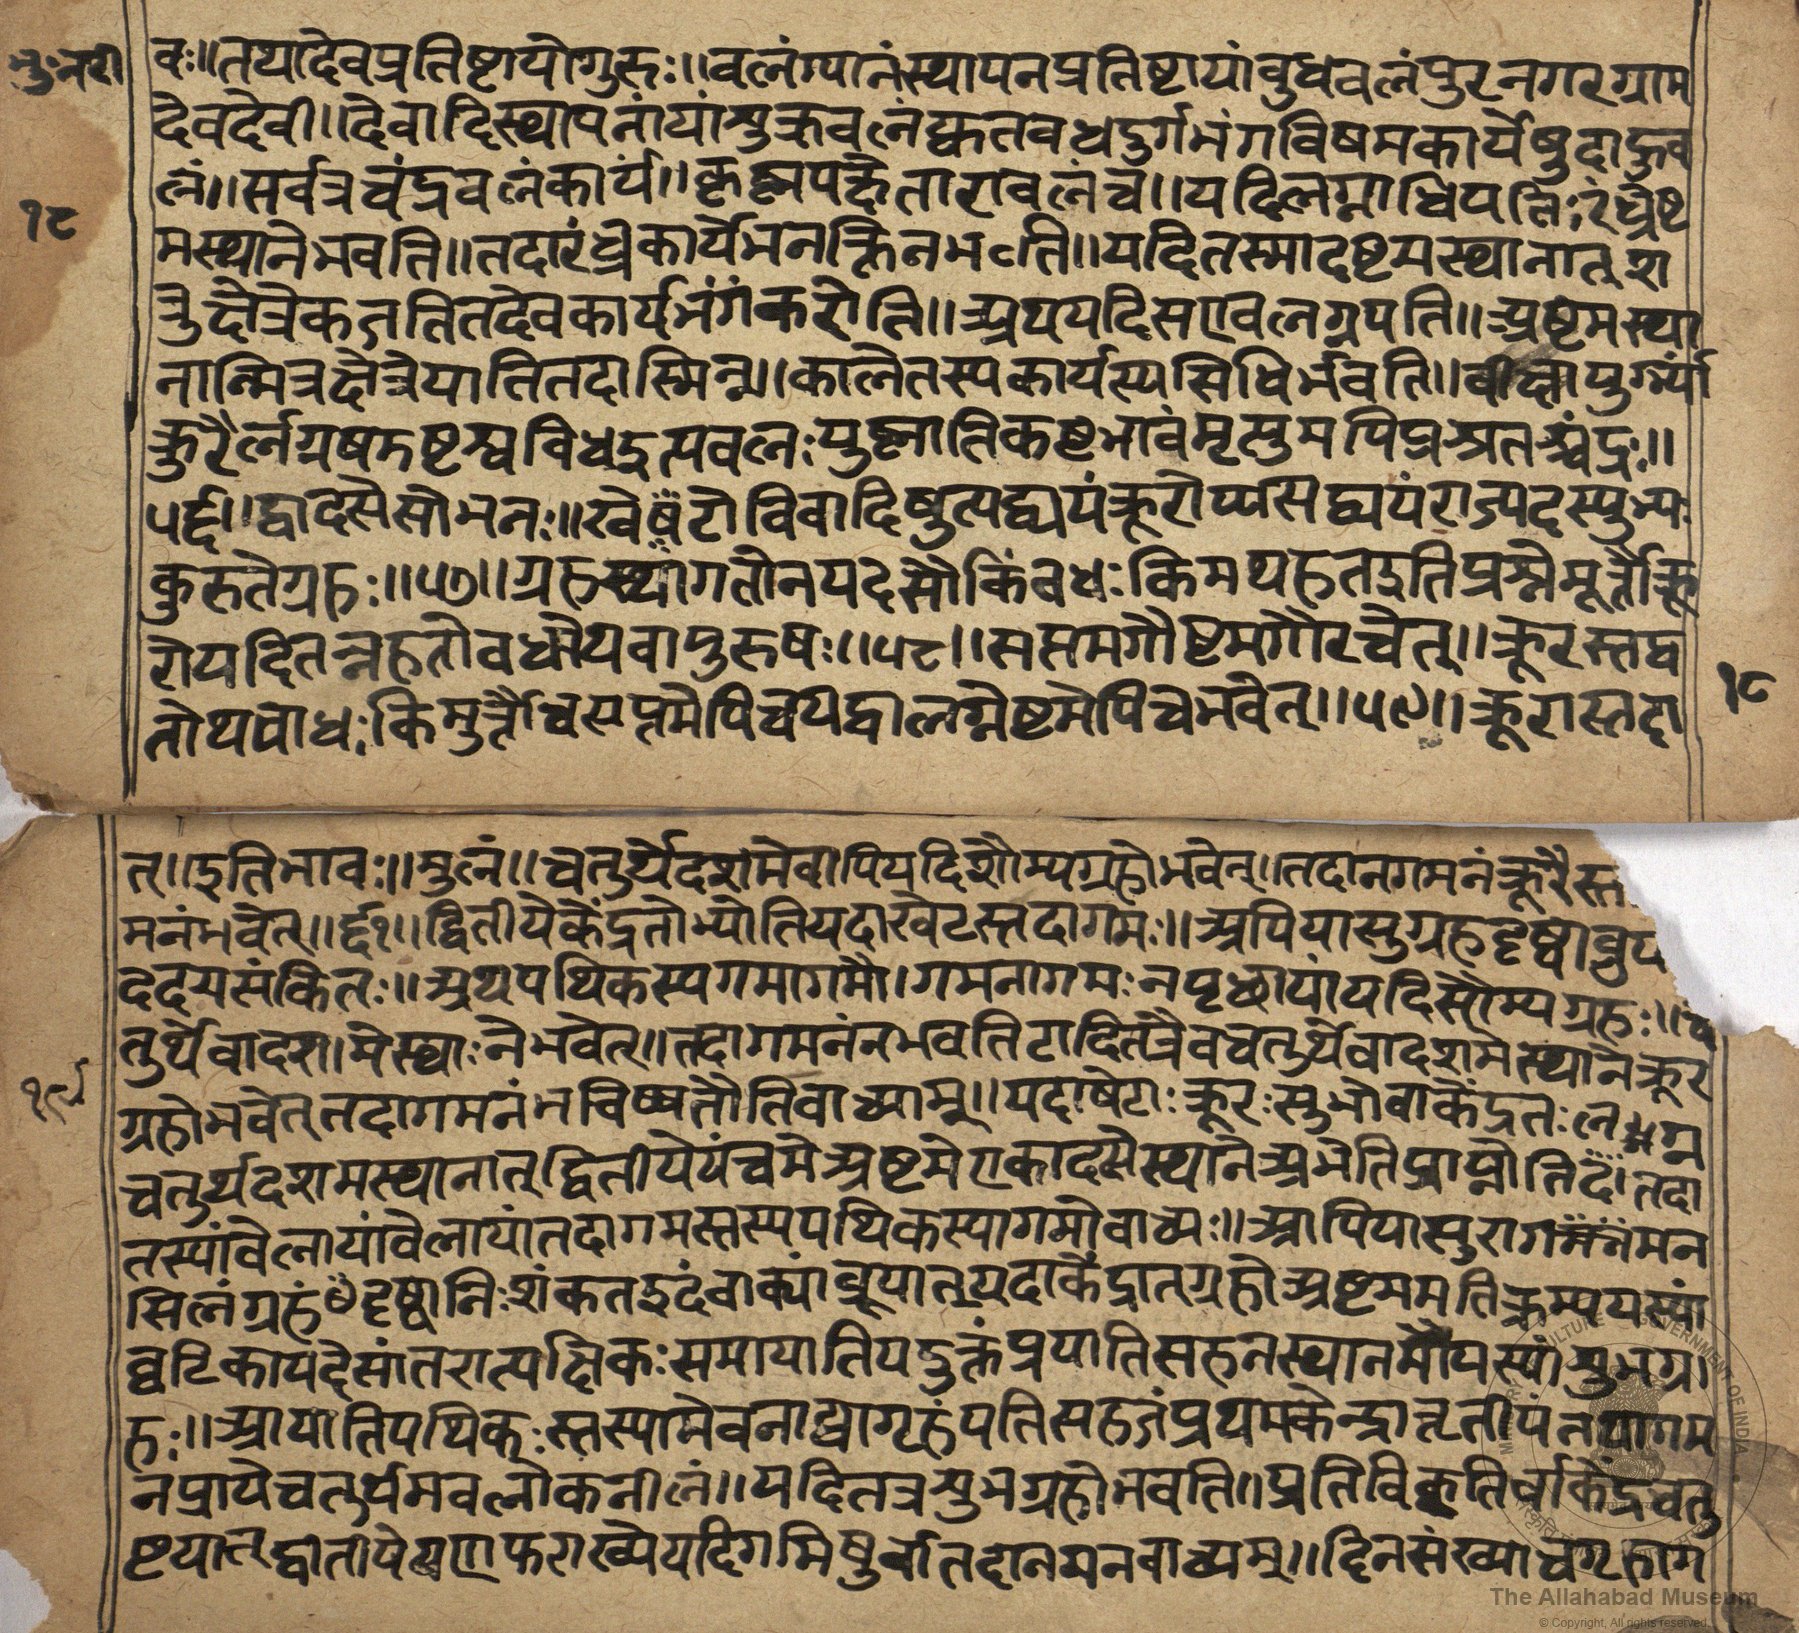 भुःनरी
वः॥तथादेवप्रतिष्टायोगुरुः॥वलंग्यानंस्थापनप्रतिष्टायांवुधवलंपुरनगरग्राम
देवदेवी॥देवादिस्थापनांयांशुक्रवलंद्यूतवधदुर्गभंगविषमकार्येषु
लं॥सर्वत्रचंद्रवलंकार्यं॥कृष्णपक्षेतारावलंच॥यदिलग्नाधिपत्तिःरंध्रेष्ट
१८
मस्थानेभवति॥तदारंध्रेकार्यमन॥यदितस्मादष्टमस्थानात्श
त्रुक्षेत्रेकजतितदेवकार्यभंगंकरोति॥अथयदिसएवलग्नपति॥अष्टमस्था
नान्मित्रक्षेत्रेयातितदास्मिन्म॥कालेतस्यकार्यस्यसिधिर्भवति॥
क्रुरैर्लग्नषडष्टश्चविधदुत्यवलःपुष्णातिकष्टभावंमृत्युमपिप्रश्नतश्चंद्रः॥
५६॥द्वादसेसोभनः॥खेषंटोविवादिषु
कुरुतेग्रहः॥५७॥ग्रहस्थागतोनयदसौकिंवधःकिमथहतइतिप्रश्नेमूर्त्तौक्रू
रोयदितन्नहतोवधोथवापुरुषः॥५८॥सप्तमगौष्टमगौरचेत्॥क्रूरस्तद्व
१८
तोथवाधःकिमुर्त्तौचसप्तमेपिचयद्वालग्नेष्टमेपिचभवेत्॥५९॥क्रूरास्तदा
त्॥इतिभावः॥मुलं॥चतुर्थेदशमेवापियदिशौम्यग्रहोभवेत्।तदानगमनंक्रूरैस्त
मनंभवेत्॥६१॥द्वितीयेकेंद्रतोभ्योतियदाखेटस्तदागमः॥अपियासुग्रहदृष्ट्वाव्रुय
ददयसंकितः॥अथपथिकस्यगमागमौ।गमनागमःनपृछायांयदिसौम्यग्रहः॥च
तुर्थेवादश।मेस्थाःनेभवेत्॥तदागमनंनभवतिटादितत्रैवचतुर्थेवादशमेस्थानेक्रूर
१९
ग्रहोभवेत्तदागमनंभविष्यतीतिवाच्यामू॥यदाषेटाःक्रूरःसुभोवाकेंद्रतःलेग्न
चतुर्थदशमस्थानात्द्वितीयेयंचमेअष्टमेएकादसेस्थानेअभेतिप्राप्नोतितदा
तस्यांवेलायांवेलायांतदागमस्तस्यपथिकस्यागमोवाच्यः॥आपियासुरागमन
सिलंग्रहंदृष्ट्वानिःशंकतइदंवाक्यांव्रूयात्यदाकेंद्रात्ग्रहोअष्टममतिक्रम्पयस्यां
घटिकायंदेसांतरात्पक्षिकःसमायातियदुक्तंप्रयातिसहनस्थानमौयस्यांशुभग्र
हः॥आयातिपथिकःस्तस्यामेवनाद्यागृहंपतिसहजंप्रथमकेन्द्रात्तृतीयंतयागम
नप्रायेचतुर्थमवलोकनीलं॥यदितत्रशुभग्रहोभवति॥प्रतिविकृतिर्वाकेंद्रचतु
ष्टयात्द्वीतीयेपणफराख्येयदिगमिषुर्वातदानमनवाच्यम्॥दिनसंख्या
The Allahabad Museum
© Copyright, All rights reserved.